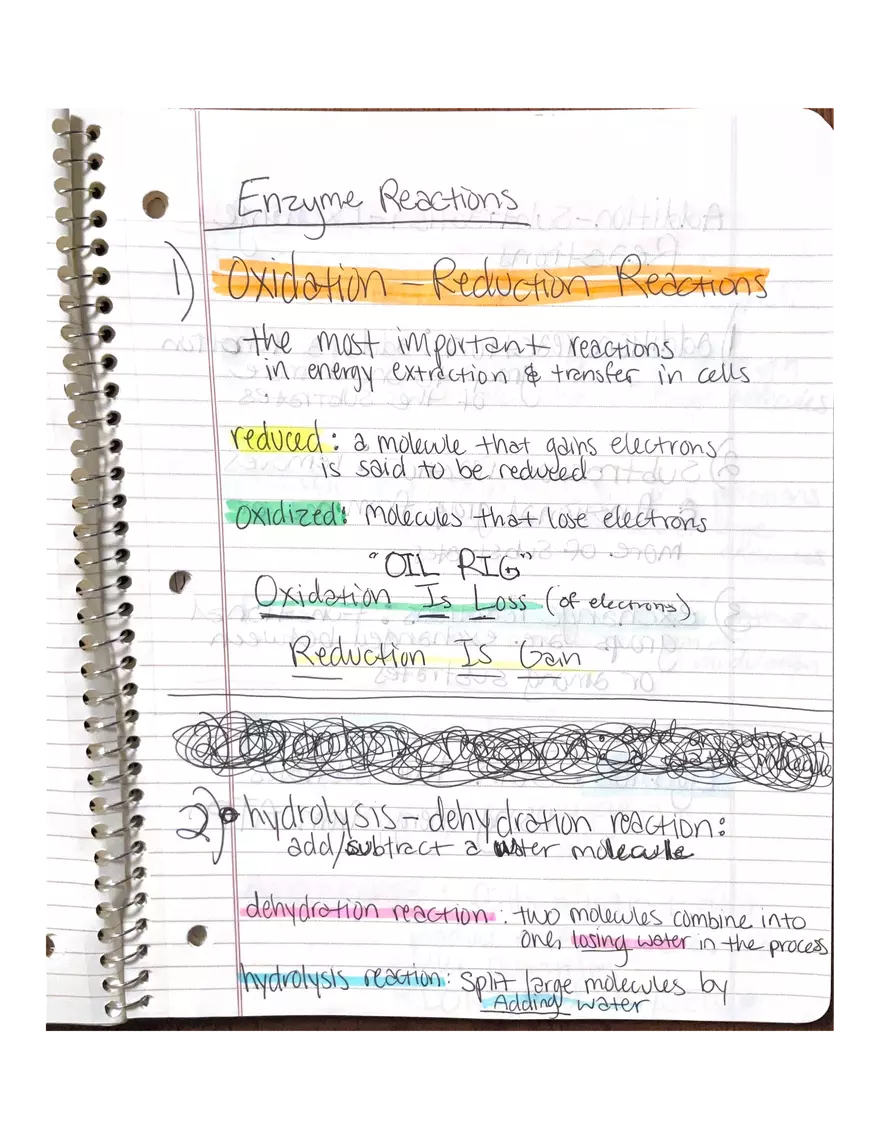 Enzyme Reactions
1) Oxidation - Reduction Reactions
the most important reactions
in energy extraction & transfer in cells
reduced: a molecule that gains electrons
is said to be reduced
oxidized: molecules that lose electrons
"OIL RIG"
Oxidation Is Loss (of electrons)
Reduction Is Gain
2) hydrolysis - dehydration reaction:
add/subtract a water molecule
dehydration reaction: two molecules combine into
one, losing water in the process
hydrolysis reaction: split large molecules by
Adding water